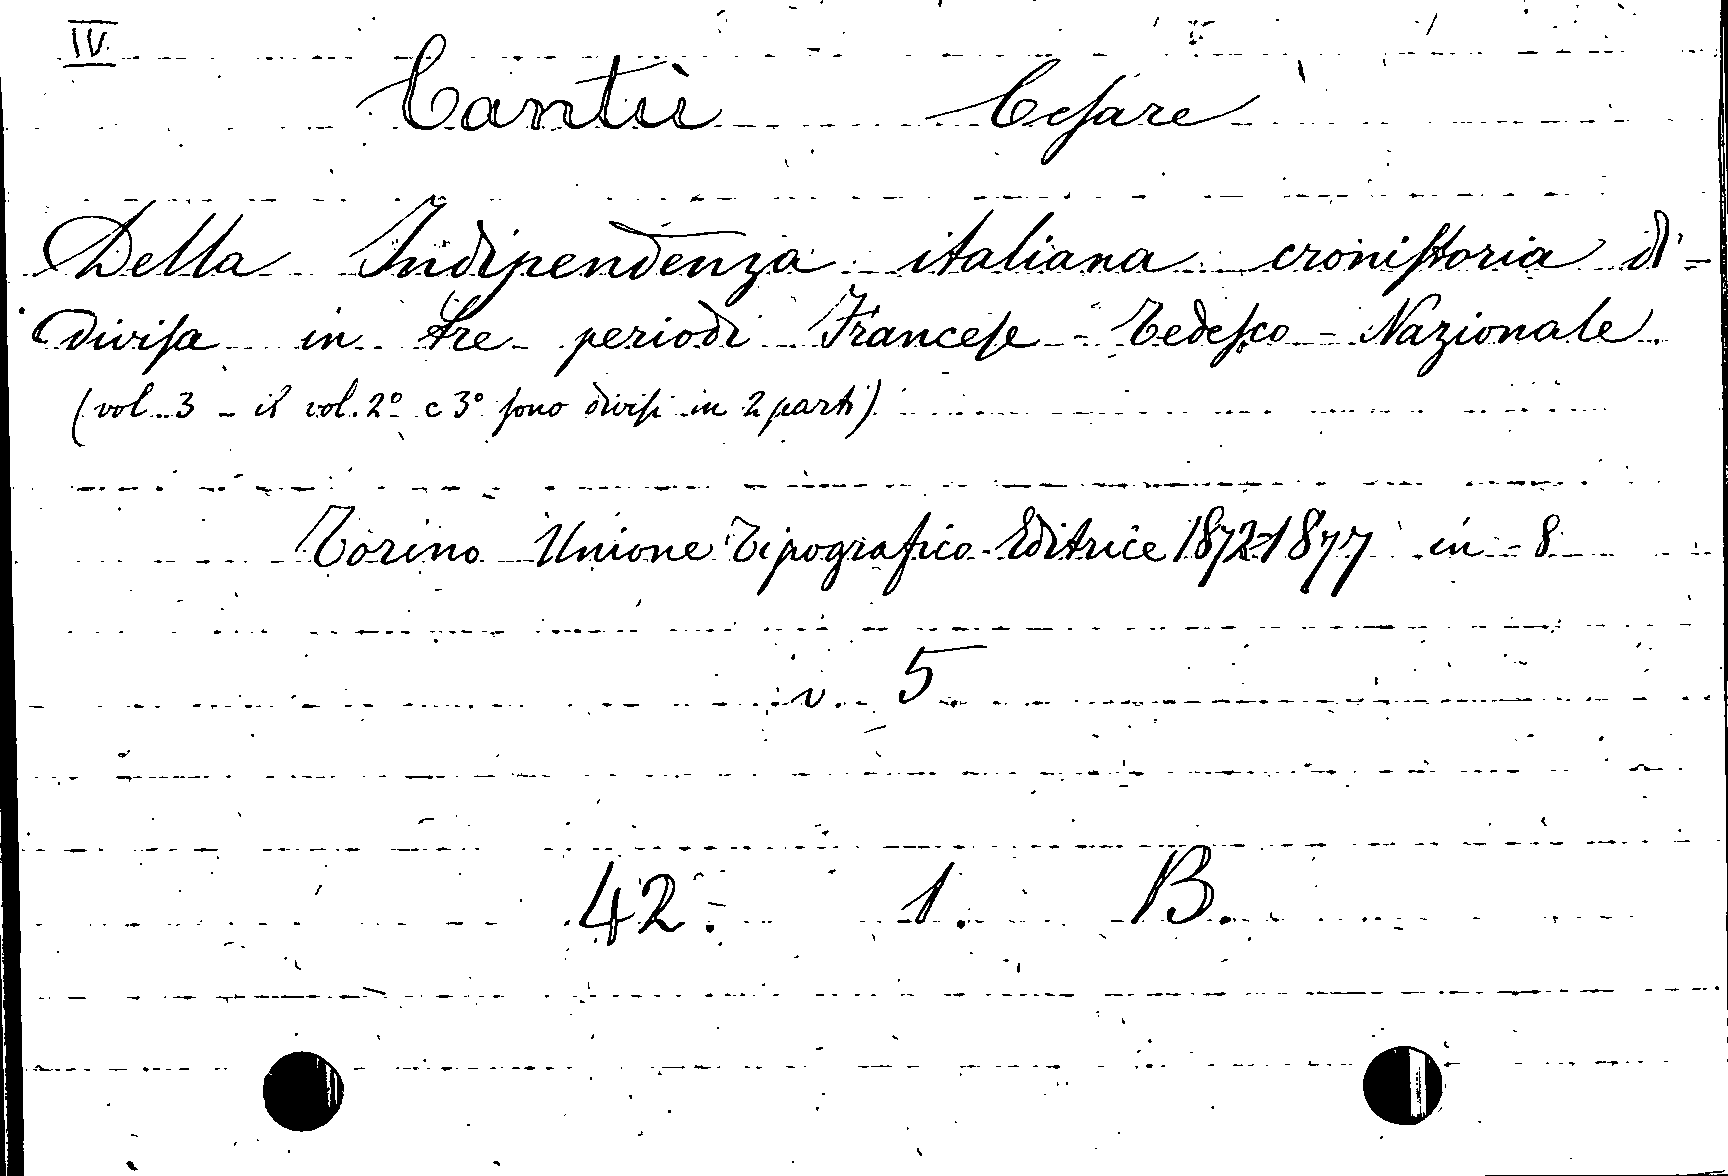 IV
Cantù Cesare
Della Indipendenza italiana cronistoria di-
divisa in tre periodi Francese - Tedesco - Nazionale.
(vol. 3 - il vol. 2º e 3º sono divisi in 2 parti)
Torino Unione Tipografico-Editrice 1872-1877 in 8
v. 5
42. 1. B.